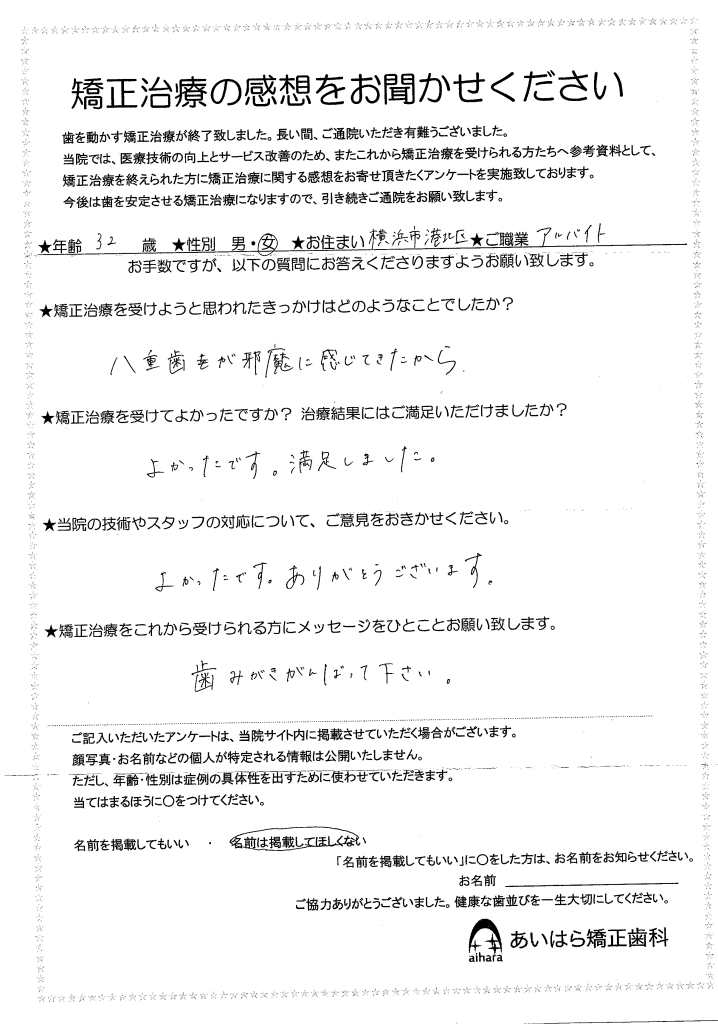 矯正治療の感想をお聞かせください
歯を動かす矯正治療が終了致しました。長い間、ご通院いただき有難うございました。
当院では、医療技術の向上とサービス改善のため、またこれから矯正治療を受けられる方たちへ参考資料として、
矯正治療を終えられた方に矯正治療に関する感想をお寄せ頂きたくアンケートを実施致しております。
今後は歯を安定させる矯正治療になりますので、引き続きご通院をお願い致します。
★年齢 32 歳 ★性別 男・女 ★お住まい 横浜市港北区 ★ご職業 アルバイト
お手数ですが、以下の質問にお答えくださりますようお願い致します。
★矯正治療を受けようと思われたきっかけはどのようなことでしたか?
八重歯が邪魔に感じてきたから.
★矯正治療を受けてよかったですか? 治療結果にはご満足いただけましたか?
よかったです。満足しました。
★当院の技術やスタッフの対応について、ご意見をおきかせください。
よかったです。ありがとうございます。
★矯正治療をこれから受けられる方にメッセージをひとことお願い致します。
歯みがきがんばって下さい。
ご記入いただいたアンケートは、当院サイト内に掲載させていただく場合がございます。
顔写真・お名前などの個人が特定される情報は公開いたしません。
ただし、年齢・性別は症例の具体性を出すために使わせていただきます。
当てはまるほうに〇をつけてください。
名前を掲載してもいい ・ 名前は掲載してほしくない
「名前を掲載してもいい」に〇をした方は、お名前をお知らせください。
お名前
ご協力ありがとうございました。健康な歯並びを一生大切にしてください。
aihara あいはら矯正歯科